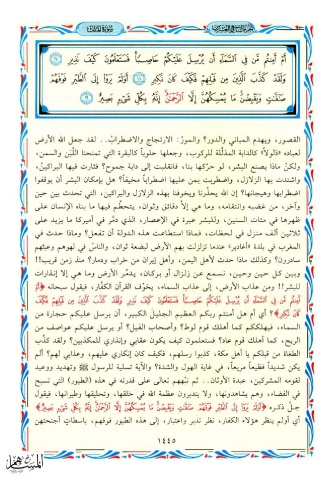 أَمْ أَمِنتُم مَّن فِي السَّمَاءِ أَن يُرْسِلَ عَلَيْكُمْ حَاصِبًا فَسَتَعْلَمُونَ كَيْفَ نَذِيرِ
وَلَقَدْ كَذَّبَ الَّذِينَ مِن قَبْلِهِمْ فَكَيْفَ كَانَ نَكِيرِ أَوَلَمْ يَرَوْا إِلَى الطَّيْرِ فَوْقَهُمْ
صَافَّاتٍ وَيَقْبِضْنَ مَا يُمْسِكُهُنَّ إِلَّا الرَّحْمَنُ إِنَّهُ بِكُلِّ شَيْءٍ بَصِيرٌ
القصور، ويهدم المباني والدور؟ والمورُ: الارتجاج والاضطراب.. لقد جعل الله الأرض
لعباده «ذلولاً» كالدابة المذلَّلة للركوب، وجعلها حلوباً كالبقرة التي تمنحنا اللَّبن والسمن،
ولكنْ ماذا يصنع البشر، لو حرَّكها بنا، فانقلبت إلى دابة جموح؟ فثارت فيها البراكين،
واشتدت بها الزلازل، واضطربت بمن عليها اضطراباً مخيفاً؟ هل بإمكان البشر أن يوقفوا
اضطرابها وهيجانها؟ إن الله يحذِّرنا ويخوفنا بهذه الزلازل والبراكين، التي تحدث بين حين
وآخر، من غضبه وانتقامه، وما هي إلاَّ دقائق وثوان، يتحطَّم فيها ما بناه الإنسان على
ظهرها في مئات السنين، وللبشر عبرة في الإعصار، الذي دمَّر في أميركا ما يزيد على
ثلاثين ألف منزل في لحظات، فماذا استطاعت هذه الدولة أن تفعل؟ وماذا حدث في
المغرب في بلدة «أغادير» عندما تزلزلت بهم الأرض لبضعة ثوان، والناسُ في لهوهم وعبثهم
سادرون؟ وكذلك ماذا حدث لأهل اليمن، وأهل إيران من خراب ودمار؟ منذ زمن قريب!!
وبين كل حين وحين، نسمع عن زلزال أو بركان، يدمِّر الأرض وما هي إلاَّ إنذارات
للبشر!! ومن عذاب الأرض، إلى عذاب السماء، يخوّف القرآن الكفّار، فيقول سبحانه ﴿أَمْ
أَمِنتُم مَّن فِي السَّمَاءِ أَن يُرْسِلَ عَلَيْكُمْ حَاصِبًا فَسَتَعْلَمُونَ كَيْفَ نَذِيرِ وَلَقَدْ كَذَّبَ الَّذِينَ مِن قَبْلِهِمْ فَكَيْفَ
كَانَ نَكِيرِ﴾؟ أي أم هل أمنتم ربكم العظيم الجليل الكبير، أن يرسل عليكم حجارة من
السماء، فيهلككم كما أهلك قوم لوط؟ وأصحاب الفيل؟ أو يرسل عليكم عواصف من
الريح، كما أهلك قوم عاد؟ فستعلمون كيف يكون عقابي وإنذاري للمكذبين؟ ولقد كذَّب
الطغاة من قبلكم يا أهل مكة، كذبوا رسلهم، فكيف كان إنكاري عليهم، وعذابي لهم؟ ألم
يكن شديداً فظيعاً مريعاً، في غاية الهول والشدة؟ والآية تسلية للرسول ﷺ وتهديد ووعيد
لقومه المشركين، عبدة الأوثان.. ثم نبَّههم تعالى على قدرته في هذه (الطيور) التي تسبح
في الفضاء، وهم يشاهدونها، ولا يتدبرون عظمة الله في خلقها، وتحليقها وطيرانها، فيقول
جلَّ ذكره ﴿أَوَلَمْ يَرَوْا إِلَى الطَّيْرِ فَوْقَهُمْ صَافَّاتٍ وَيَقْبِضْنَ مَا يُمْسِكُهُنَّ إِلَّا الرَّحْمَنُ إِنَّهُ بِكُلِّ شَيْءٍ بَصِيرٌ﴾
أي أولم ينظر هؤلاء الكفار، نظر تدبر واعتبار، إلى هذه الطيور فوقهم، باسطات أجنحتهن
١٤٤٥